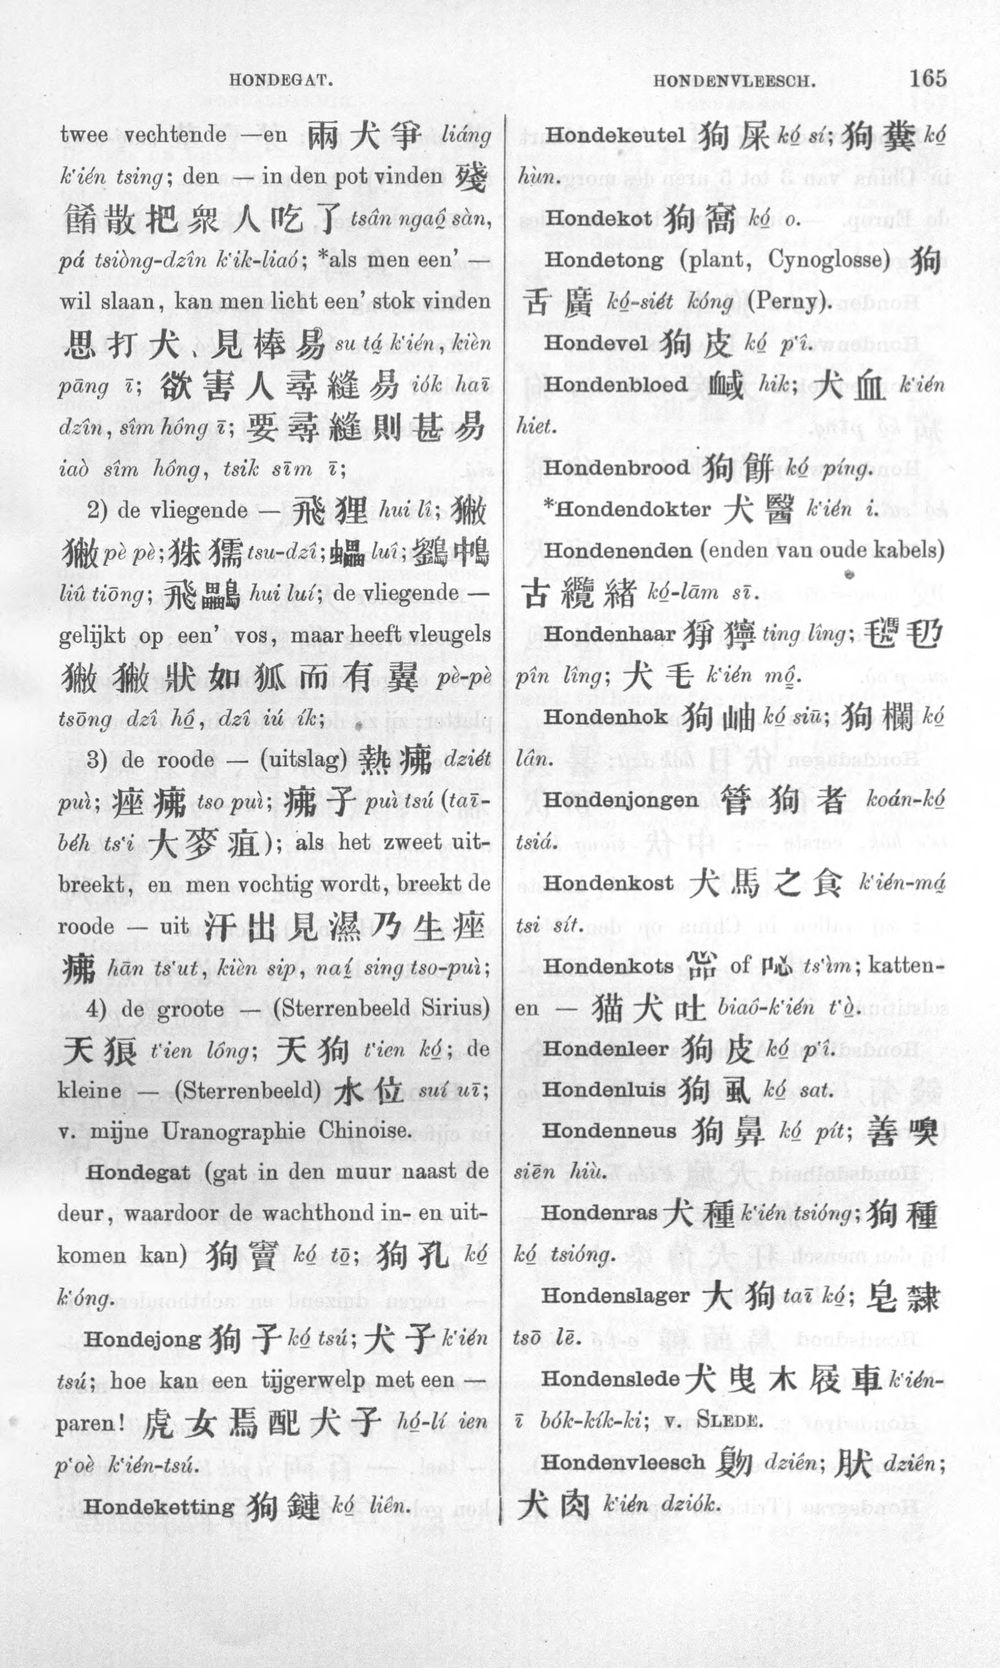 HONDEGAT.
HONDENVLEESCH. 165
twee vechtende —en 兩犬爭 liáng
k'ién tsing; den — in den pot vinden 殘
餚散把衆人吃了 tsân ngaô̤ sàn,
pá tsiòng-dzîn k'ik-liaó; *als men een' —
wil slaan, kan men licht een' stok vinden
思打犬、見棒易 su tá̤ k'ién, kièn
pāng ī; 欲害人尋縫易 iók haī
dzîn, sîm hông ī; 要尋縫則甚易
iaò sîm hông, tsik sīm ī;
2) de vliegende — 飛狸 hui lî; 獙
獙 pè pè; 㹣獳 tsu-dzî; 蠝 luî; 鷚䳈
liû tiōng; 飛鸓 hui luí; de vliegende —
gelijkt op een' vos, maar heeft vleugels
獙獙狀如狐而有翼 pè-pè
tsōng dzî hô̤, dzî iú ík;
3) de roode — (uitslag) 熱疿 dziét
puì; 痤疿 tso puì; 疿子 puì tsú (taī-
béh ts'i 大麥疽); als het zweet uit-
breekt, en men vochtig wordt, breekt de
roode — uit 汗出見濕乃生痤
疿 hān ts'ut, kièn sip, naí̤ sing tso-puì;
4) de groote — (Sterrenbeeld Sirius)
天狼 t'ien lông; 天狗 t'ien kó̤; de
kleine — (Sterrenbeeld) 水位 suí uī;
v. mijne Uranographie Chinoise.
Hondegat (gat in den muur naast de
deur, waardoor de wachthond in- en uit-
komen kan) 狗竇 kó̤ tō̤; 狗孔 kó̤
k'óng.
Hondejong 狗子 kó̤ tsú; 犬子 k'ién
tsú; hoe kan een tijgerwelp met een —
paren! 虎女焉配犬子 hó̤-lí ien
p'oè k'ién-tsú.
Hondeketting 狗鏈 kó̤ liên.
Hondekeutel 狗屎 kó̤ sí; 狗糞 kó̤
hùn.
Hondekot 狗窩 kó̤ o.
Hondetong (plant, Cynoglosse) 狗
舌廣 kó̤-siét kóng (Perny).
Hondevel 狗皮 kó̤ p'î.
Hondenbloed 衊 hik; 犬血 k'ién
hiet.
Hondenbrood 狗餅 kó̤ píng.
*Hondendokter 犬醫 k'ién i.
Hondenenden (enden van oude kabels)
古纜緒 kó̤-lām sī.
Hondenhaar 猙獰 ting lîng;
pîn lîng; 犬毛 k'ién mô̤.
Hondenhok 狗岫 kó̤ siū; 狗欄 kó̤
lân.
Hondenjongen 管狗者 koán-kó̤
tsiá.
Hondenkost 犬馬之食 k'ién-má̤
tsi sít.
Hondenkots of 吣 ts'ìm; katten-
en — 猫犬吐 biaô-k'ién t'ò̤.
Hondenleer 狗皮 kó̤ p'î.
Hondenluis 狗虱 kó̤ sat.
Hondenneus 狗鼻 kó̤ pít; 善嗅
siēn hiù.
Hondenras 犬種 k'ién tsióng; 狗種
kó̤ tsióng.
Hondenslager 大狗 taī kó̤; 皂隸
tsō lē.
Hondenslede 犬曳木屐車 k'ién-
ī bók-kík-ki; v. SLEDE.
Hondenvleesch dziên; 肰 dziên;
犬肉 k'ién dziók.